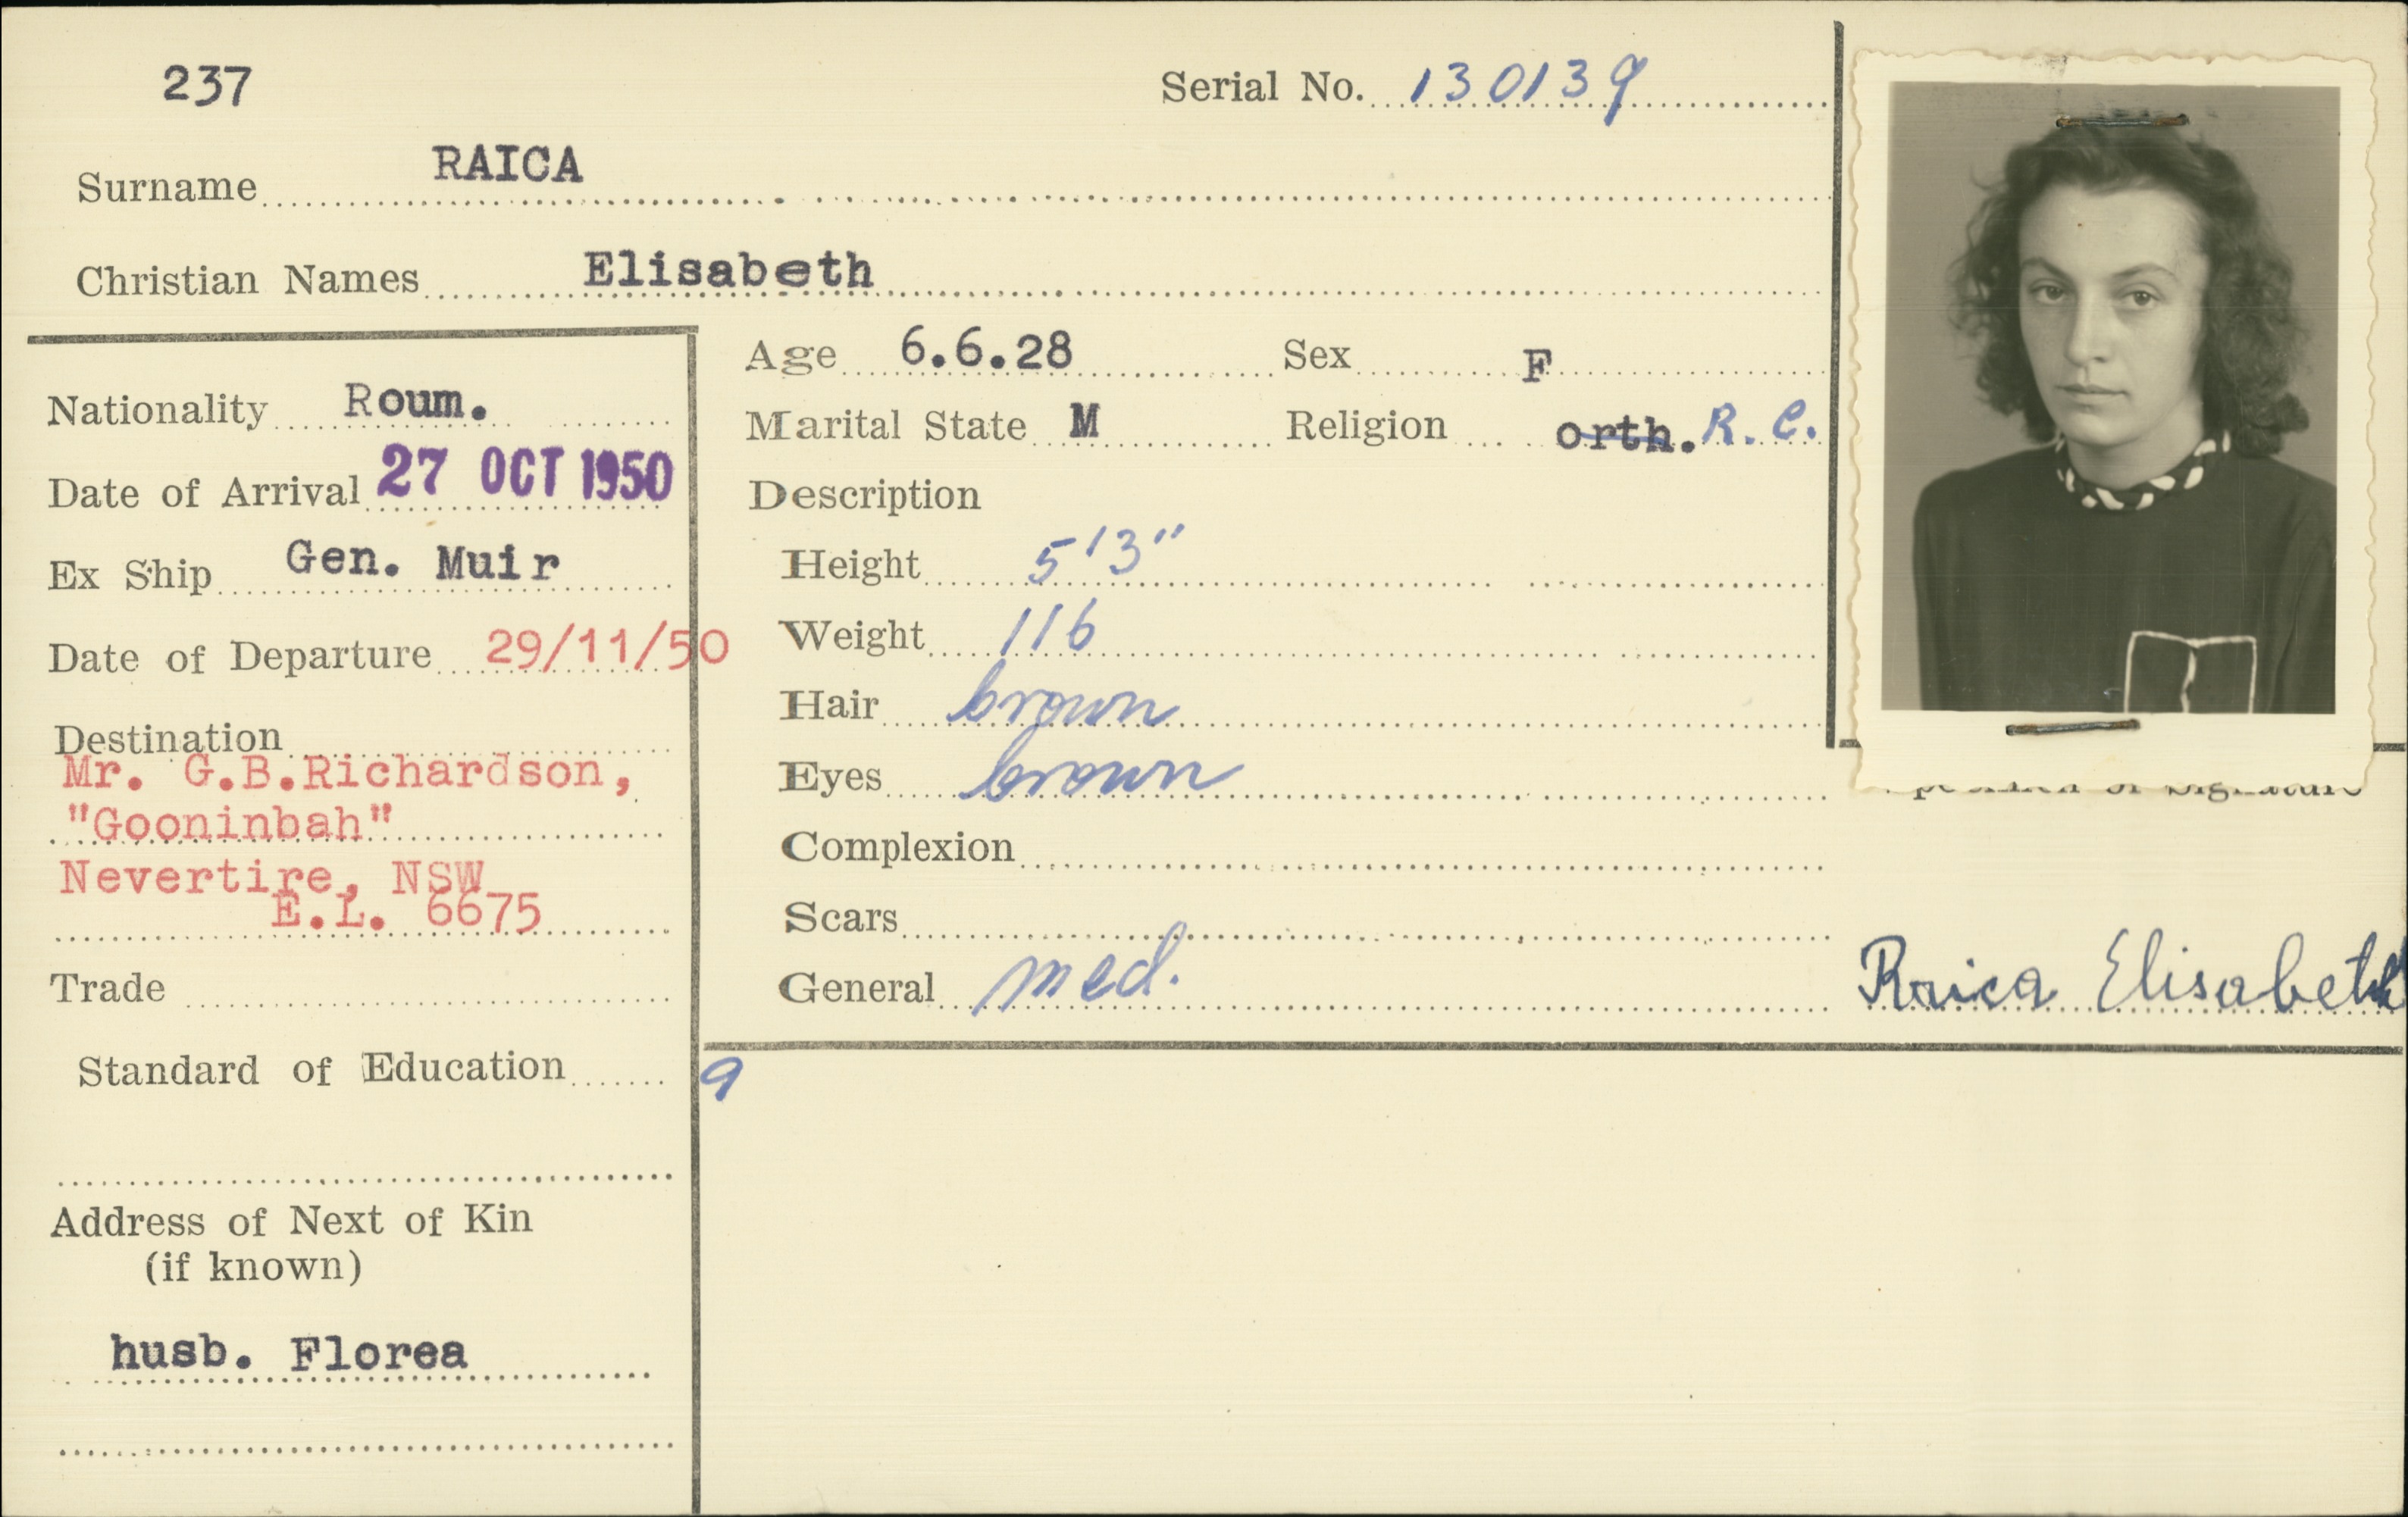 237
Serial No. 130139
Surname RAICA
Christian Names Elisabeth
Nationality Roum.
Date of Arrival 27 OCT 1950
Ex Ship Gen. Muir
Date of Departure 29/11/50
Destination
Mr. G.B.Richardson,
"Gooninbah"
Nevertire, NSW
E.L. 6675
Trade
Standard of Education
Address of Next of Kin
(if known)
husb. Florea
Age 6.6.28 Sex F
Marital State M Religion orth. R.C.
Description
Height 5'3"
Weight 116
Hair brown
Eyes brown
Complexion
Scars
General med.
9
of Signature
Raica Elisabeth